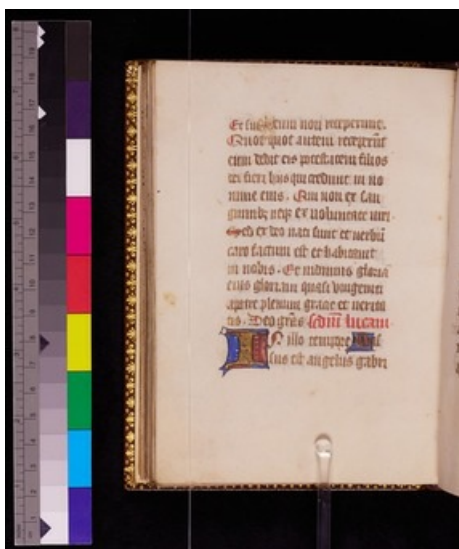 Et sui eum non receperunt.
Quot quot autem receperūt
eum dedit eis potestatem filios
dei fieri hiis qui credunt in no
mine eius. Qui non ex san
guinibꝫ neqꝫ ex voluntate viri
Sed ex deo nati sunt et verbū
caro factum est et habitauit
in nobis. Et vidimus gloriā
eius gloriam quasi vnigeniti
a patre plenum gracie et verita
tis. Deo grās scdm̄ lucam
In illo tempore Mis
sus est angelus gabri